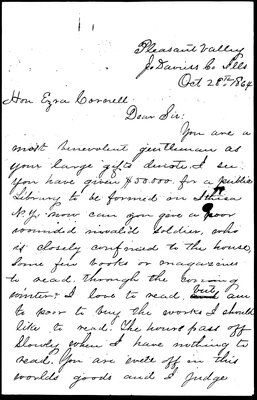 Pleasant Valley
Jo Daviess Co Ills
Oct 28th 1864
Hon Ezra Cornell
Dear Sir:
You are a
most benevolent gentleman as
your large gifts denote. I see
you have given $50.000 for a public
Library to be formed in Ithica
N.Y. now can you give a poor
wounded invalid soldier, who
is closely confined to the house,
some few books or magazines
to read through the coming
winter I love to read, but am
to poor to buy the works I should
like to read. The hours pass off
slowly when I have nothing to
read. You are well off in this
worlds goods and I judge